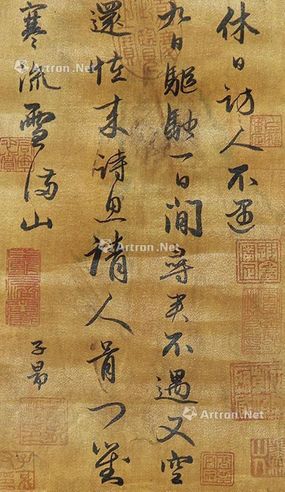 休日訪人不遇
九日驅馳一日閒尋君不遇又空
還怪來詩思清人骨门對
寒流雪满山
子昂
Artron.Net
Artron.Net
Artron.Net
Artron.Net